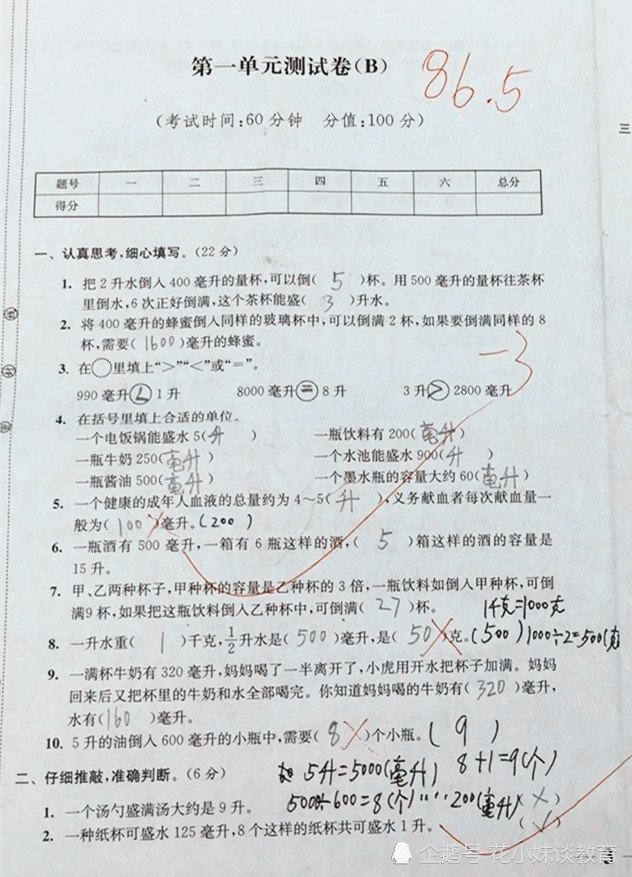 第一单元测试卷(B)
86.5
(考试时间:60分钟 分值:100分)
三
题号 一 二 三 四 五 六 总分
得分
一、认真思考,细心填写。(22分)
1. 把2升水倒入400毫升的量杯,可以倒( 5 )杯。用500毫升的量杯往茶杯
里倒水,6次正好倒满,这个茶杯能盛( 3 )升水。
2. 将400毫升的蜂蜜倒入同样的玻璃杯中,可以倒满2杯,如果要倒满同样的8
杯,需要(1600)毫升的蜂蜜。
-3
3. 在○里填上“>”“<”或“=”。
990毫升<1升 8000毫升=8升 3升>2800毫升
4. 在括号里填上合适的单位。
一个电饭锅能盛水5(升 ) 一瓶饮料有200(毫升)
一瓶牛奶250(毫升) 一个水池能盛水900(升 )
一瓶酱油500(毫升) 一个墨水瓶的容量大约60(毫升)
5. 一个健康的成年人血液的总量约为4~5(升 ),义务献血者每次献血量一
般为(100)毫升。(200)
6. 一瓶酒有500毫升,一箱有6瓶这样的酒,( 5 )箱这样的酒的容量是
15升。
7. 甲、乙两种杯子,甲种杯的容量是乙种杯的3倍,一瓶饮料如倒入甲种杯,可倒
满9杯,如果把这瓶饮料倒入乙种杯中,可倒满(27)杯。
1千克=1000克
8. 一升水重( 1 )千克,1/2升水是(500)毫升,是(50)克。(500)1000÷2=500(克
9. 一满杯牛奶有320毫升,妈妈喝了一半离开了,小虎用开水把杯子加满。妈妈
回来后又把杯里的牛奶和水全部喝完。你知道妈妈喝的牛奶有(320)毫升,
水有(160)毫升。
10. 5升的油倒入600毫升的小瓶中,需要(8)个小瓶。(9)
二、仔细推敲,准确判断。(6分)
5升=5000(毫升) 8+1=9(个)
5000÷600=8(个)……200(毫升)
1. 一个汤勺盛满汤大约是9升。 (×)
2. 一种纸杯可盛水125毫升,8个这样的纸杯共可盛水1升。 (√)
企鹅号 花小妹谈教育